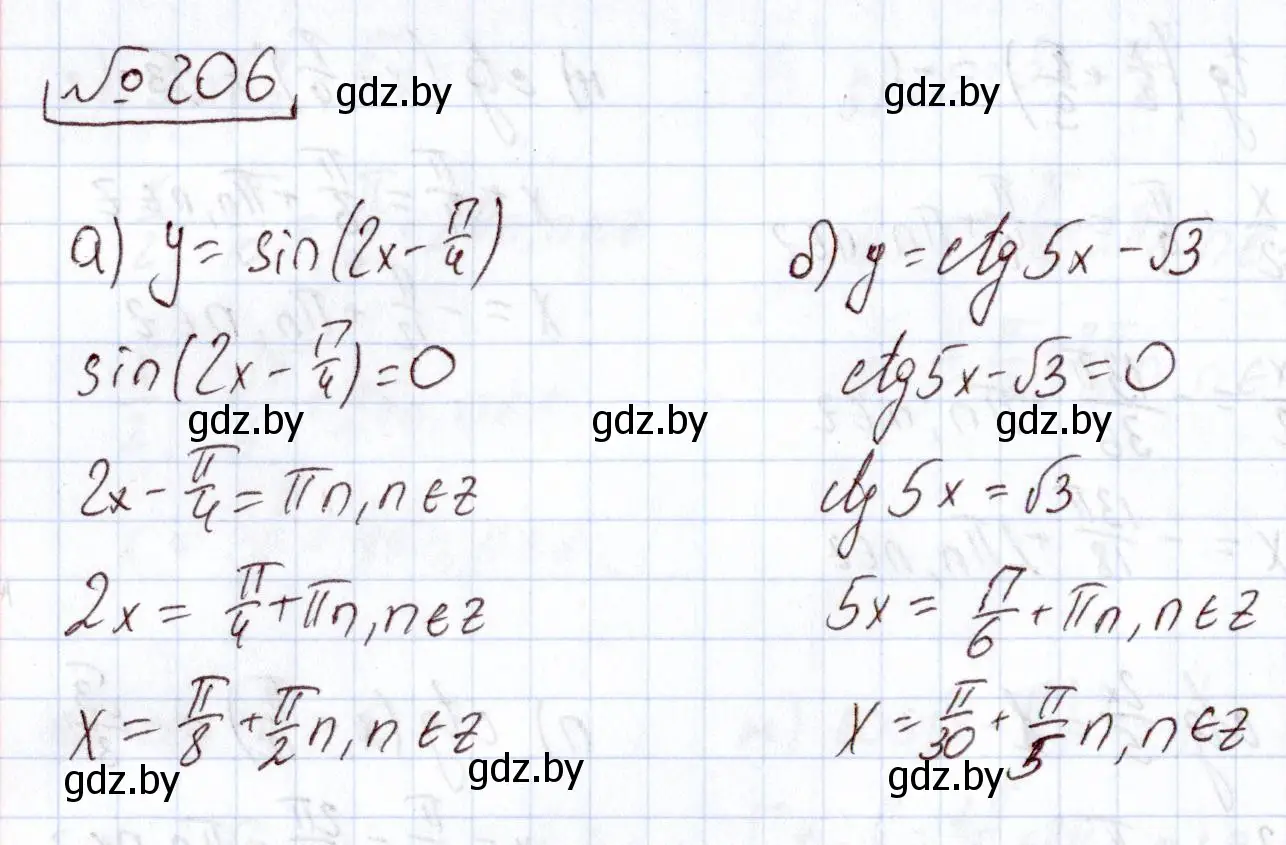 № 206
gdz.by gdz.by
а) y = sin(2x - π/4)
sin(2x - π/4) = 0
gdz.by gdz.by
2x - π/4 = πn, n ∈ z
2x = π/4 + πn, n ∈ z
x = π/8 + π/2 n, n ∈ z
gdz.by gdz.by
б) y = ctg 5x - √3
ctg 5x - √3 = 0
gdz.by
ctg 5x = √3
5x = π/6 + πn, n ∈ z
x = π/30 + π/5 n, n ∈ z
gdz.by